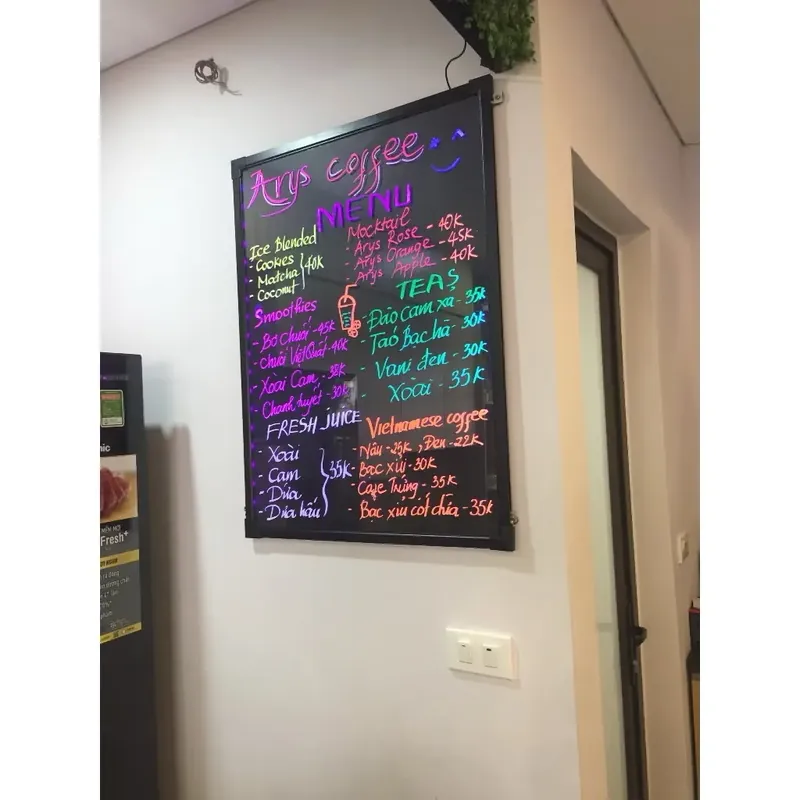 Arys coffee
MENU
Ice Blended
- Cookies
- Matcha
- Coconut
40K
Mocktail
- Arys Rose - 40K
- Arys Orange - 45K
- Arys Apple - 40K
Smoothies
- Bơ Chuối - 45K
- Chuối Việt Quất - 40K
- Xoài Cam - 38K
- Chanh tuyết - 30K
TEAS
- Đào cam xả - 35K
- Táo Bạc hà - 30K
- Vani đen - 30K
- Xoài - 35K
FRESH JUICE
- Xoài
- Cam
- Dứa
- Dưa hấu
35K
Vietnamese coffee
- Nâu - 25K, Đen - 22K
- Bạc xỉu - 30K
- Cafe Trứng - 35K
- Bạc xỉu cốt dừa - 35K
nic
Fresh+